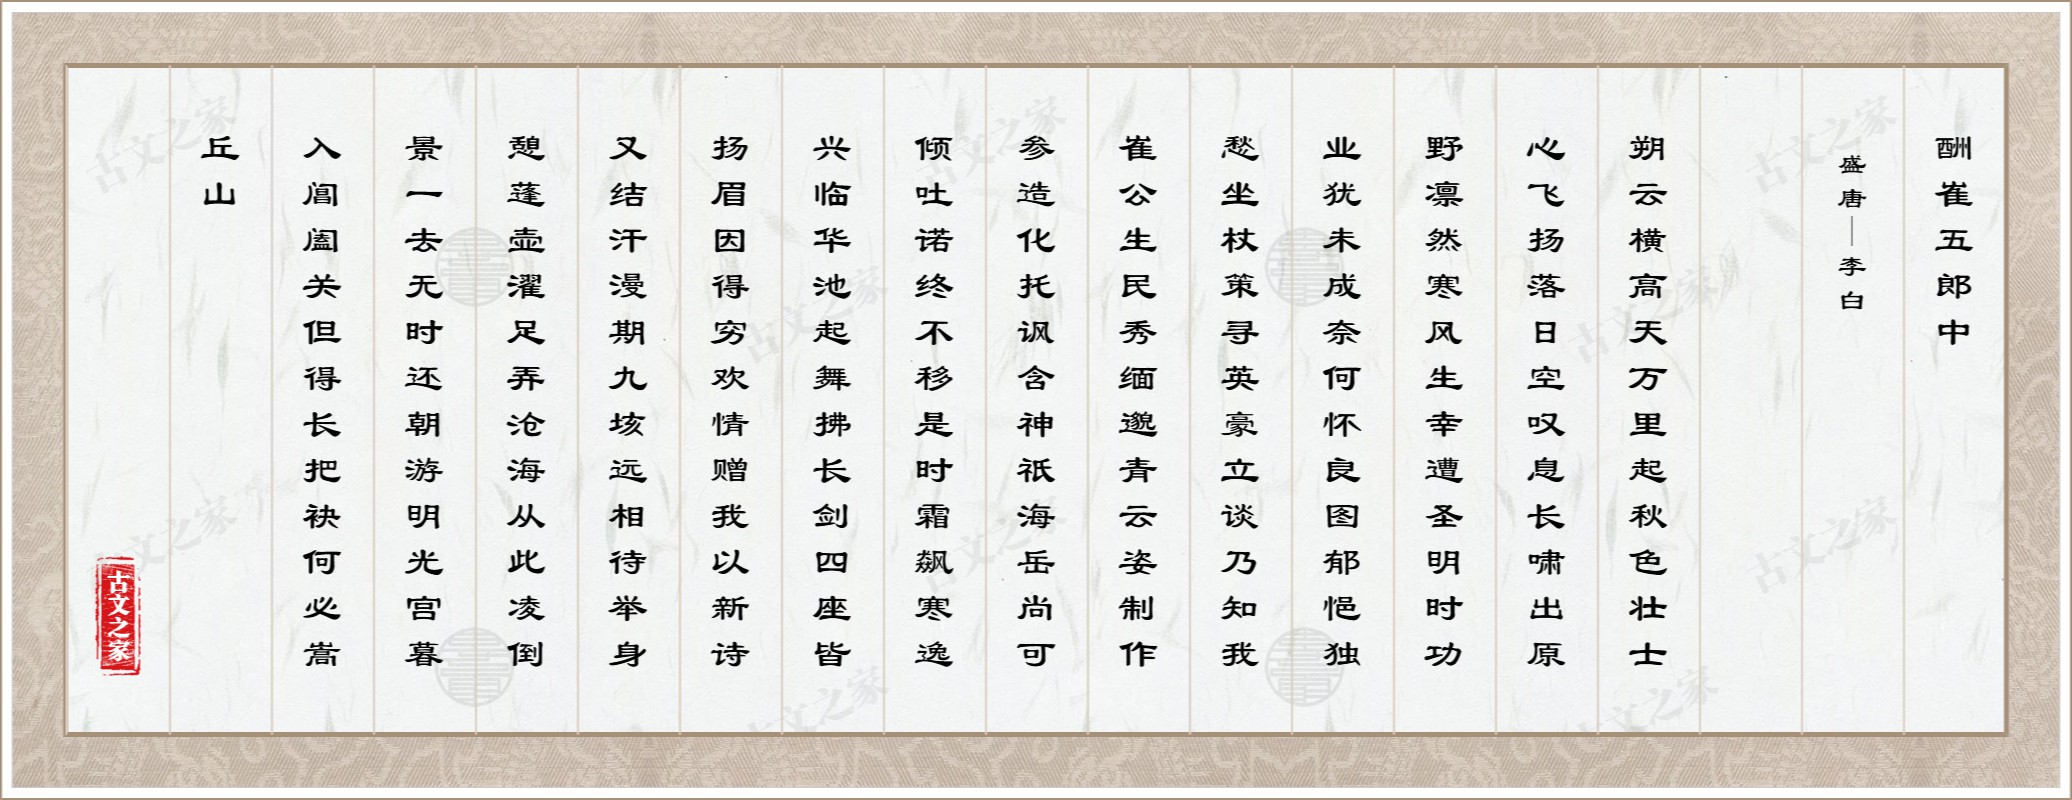 酬崔五郎中
盛唐—李白
朔云横高天万里起秋色壮士
心飞扬落日空叹息长啸出原
野凛然寒风生幸遭圣明时功
业犹未成奈何怀良图郁悒独
愁坐杖策寻英豪立谈乃知我
崔公生民秀缅邈青云姿制作
参造化托讽含神祇海岳尚可
倾吐诺终不移是时霜飙寒逸
兴临华池起舞拂长剑四座皆
扬眉因得穷欢情赠我以新诗
又结汗漫期九垓远相待举身
憩蓬壶濯足弄沧海从此凌倒
景一去无时还朝游明光宫暮
入阊阖关但得长把袂何必嵩
丘山
古文之家